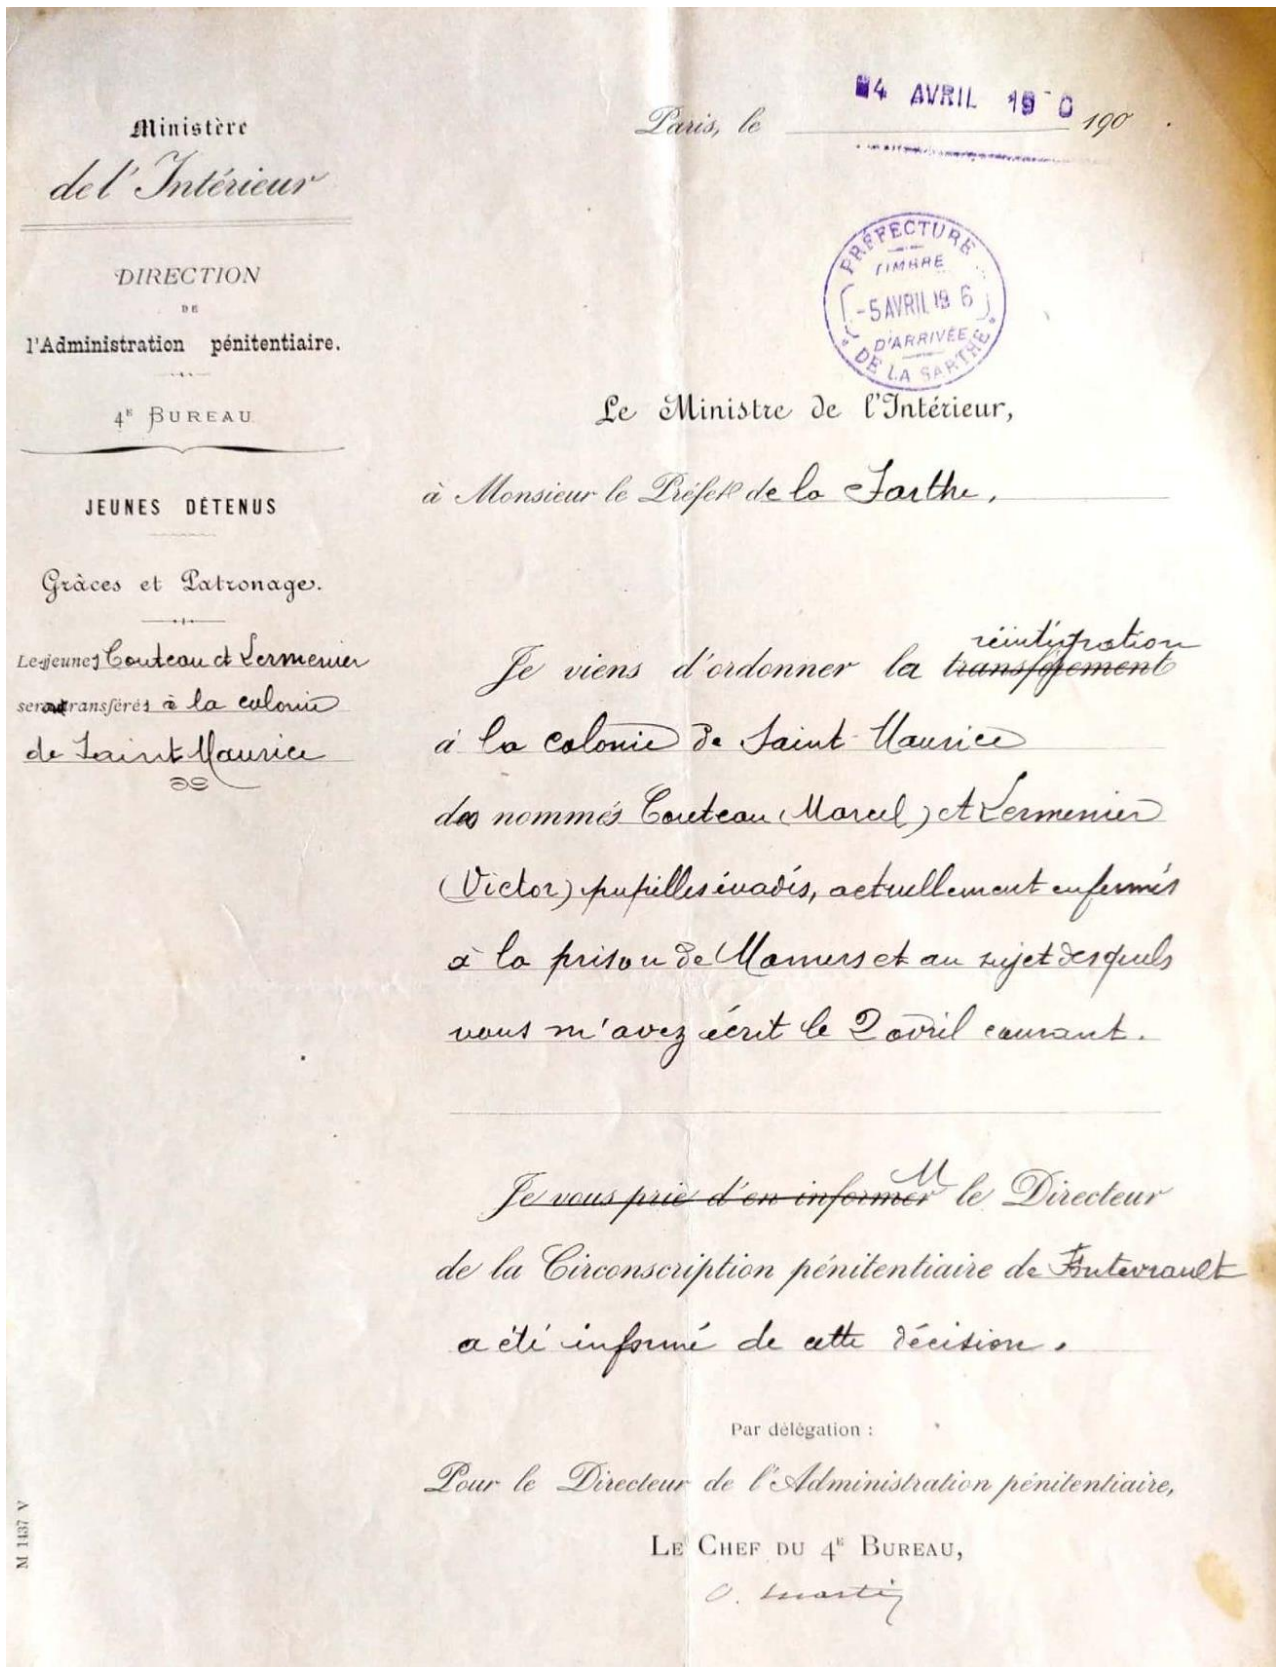 Ministère
de l'Intérieur
DIRECTION
DE
l'Administration pénitentiaire.
4E BUREAU
JEUNES DÉTENUS
Grâces et Patronage.
Les jeunes Couteau et Lermenier
seront transférés à la colonie
de Saint Maurice
4 AVRIL 19
Paris, le 190 .
PRÉFECTURE
TIMBRE
-5 AVRIL 19 6
D'ARRIVÉE
DE LA SARTHE
Le Ministre de l'Intérieur,
à Monsieur le Préfet de la Sarthe,
réintégration
Je viens d'ordonner la transfèrement
à la colonie de Saint-Maurice
des nommés Couteau (Marcel) et Lermenier
(Victor) pupilles évadés, actuellement enfermés
à la prison de Mamers et au sujet desquels
vous m'avez écrit le 2 avril courant.
M
Je vous prie d'en informer le Directeur
de la Circonscription pénitentiaire de Fontevrault
a été informé de cette décision.
Par délégation :
Pour le Directeur de l'Administration pénitentiaire,
LE CHEF DU 4E BUREAU,
M 1437 V